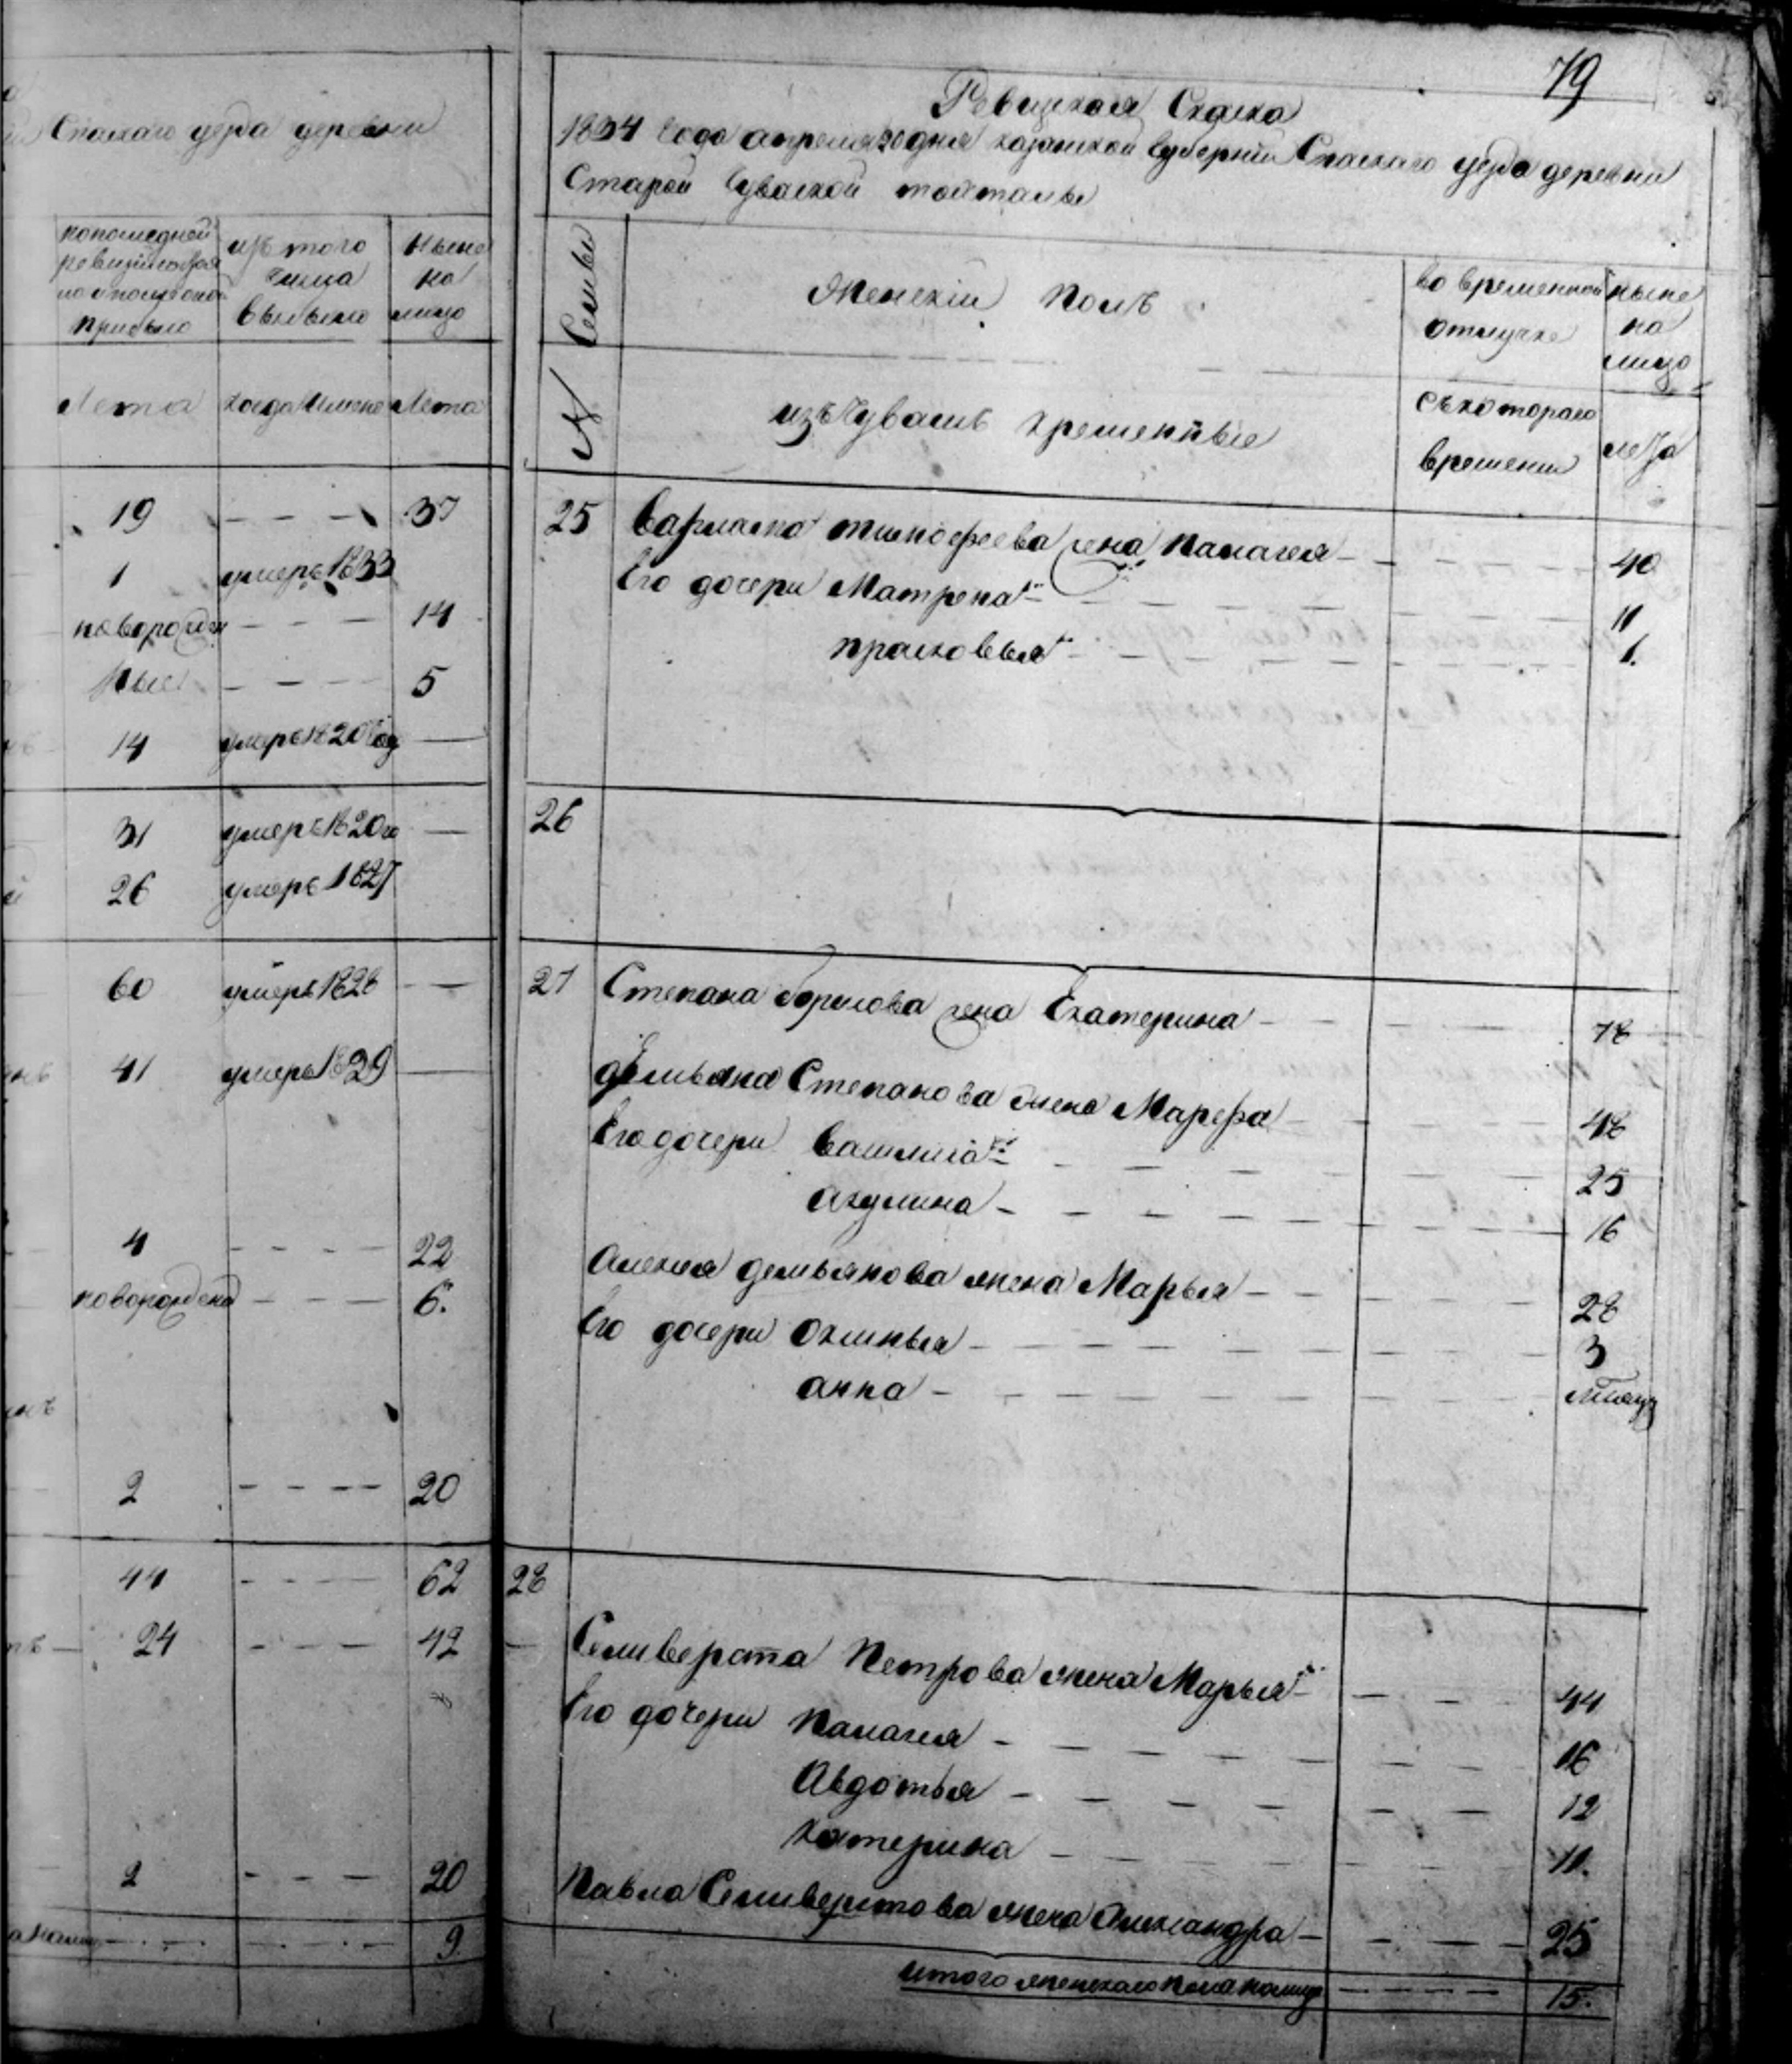 Спаскаго уезда деревни
попоследней
ревизии состоя
ло и после оной
прибыло
изъ того
числа
выбыло
ныне
на
лицо
Лета
когда именно
Лета
19 — — — 37
1 умеръ 1833
новорожден — — — 14
ные — — — 5
14 умеръ 1820 год —
31 умеръ 1820 го —
26 умеръ 1827
60 умеръ 1828 — —
41 умеръ 1829 —
4 — — — — 22
новорожденой — — — 6.
2 — — — — 20
44 — — — — 62
24 — — — 42
2 — — — 20
9
79
Ревизская Сказка
1834 Года апреля 30 дня казанской Губернии Спаскаго уезда деревни
Старой Чуваской майтаны
№ Семьи
Женскiй Полъ
изъ Чувашъ крещенные
во временной
отлучке
съ котораго
времени
ныне
на
лицо
лета
25 Варлама тимофеева жена Палагея — 40
Его дочери Матрена — 11
прасковья — 1.
26
27 Степана борисова жена Екатерина — 78
демьяна Степанова жена Марфа — 48
Его дочери Василиса — 25
акулина — 16
Алексея демьянова жена Марья — 28
Его дочери Оксинья — 3
анна —
28
Селиверста Петрова жена Марья — 44
Его дочери Палагея — 16
Авдотья — 12
Катерина — 11.
Павла Селиверстова жена Александра — 25
итого женскаго пола налицо — — — — 15.